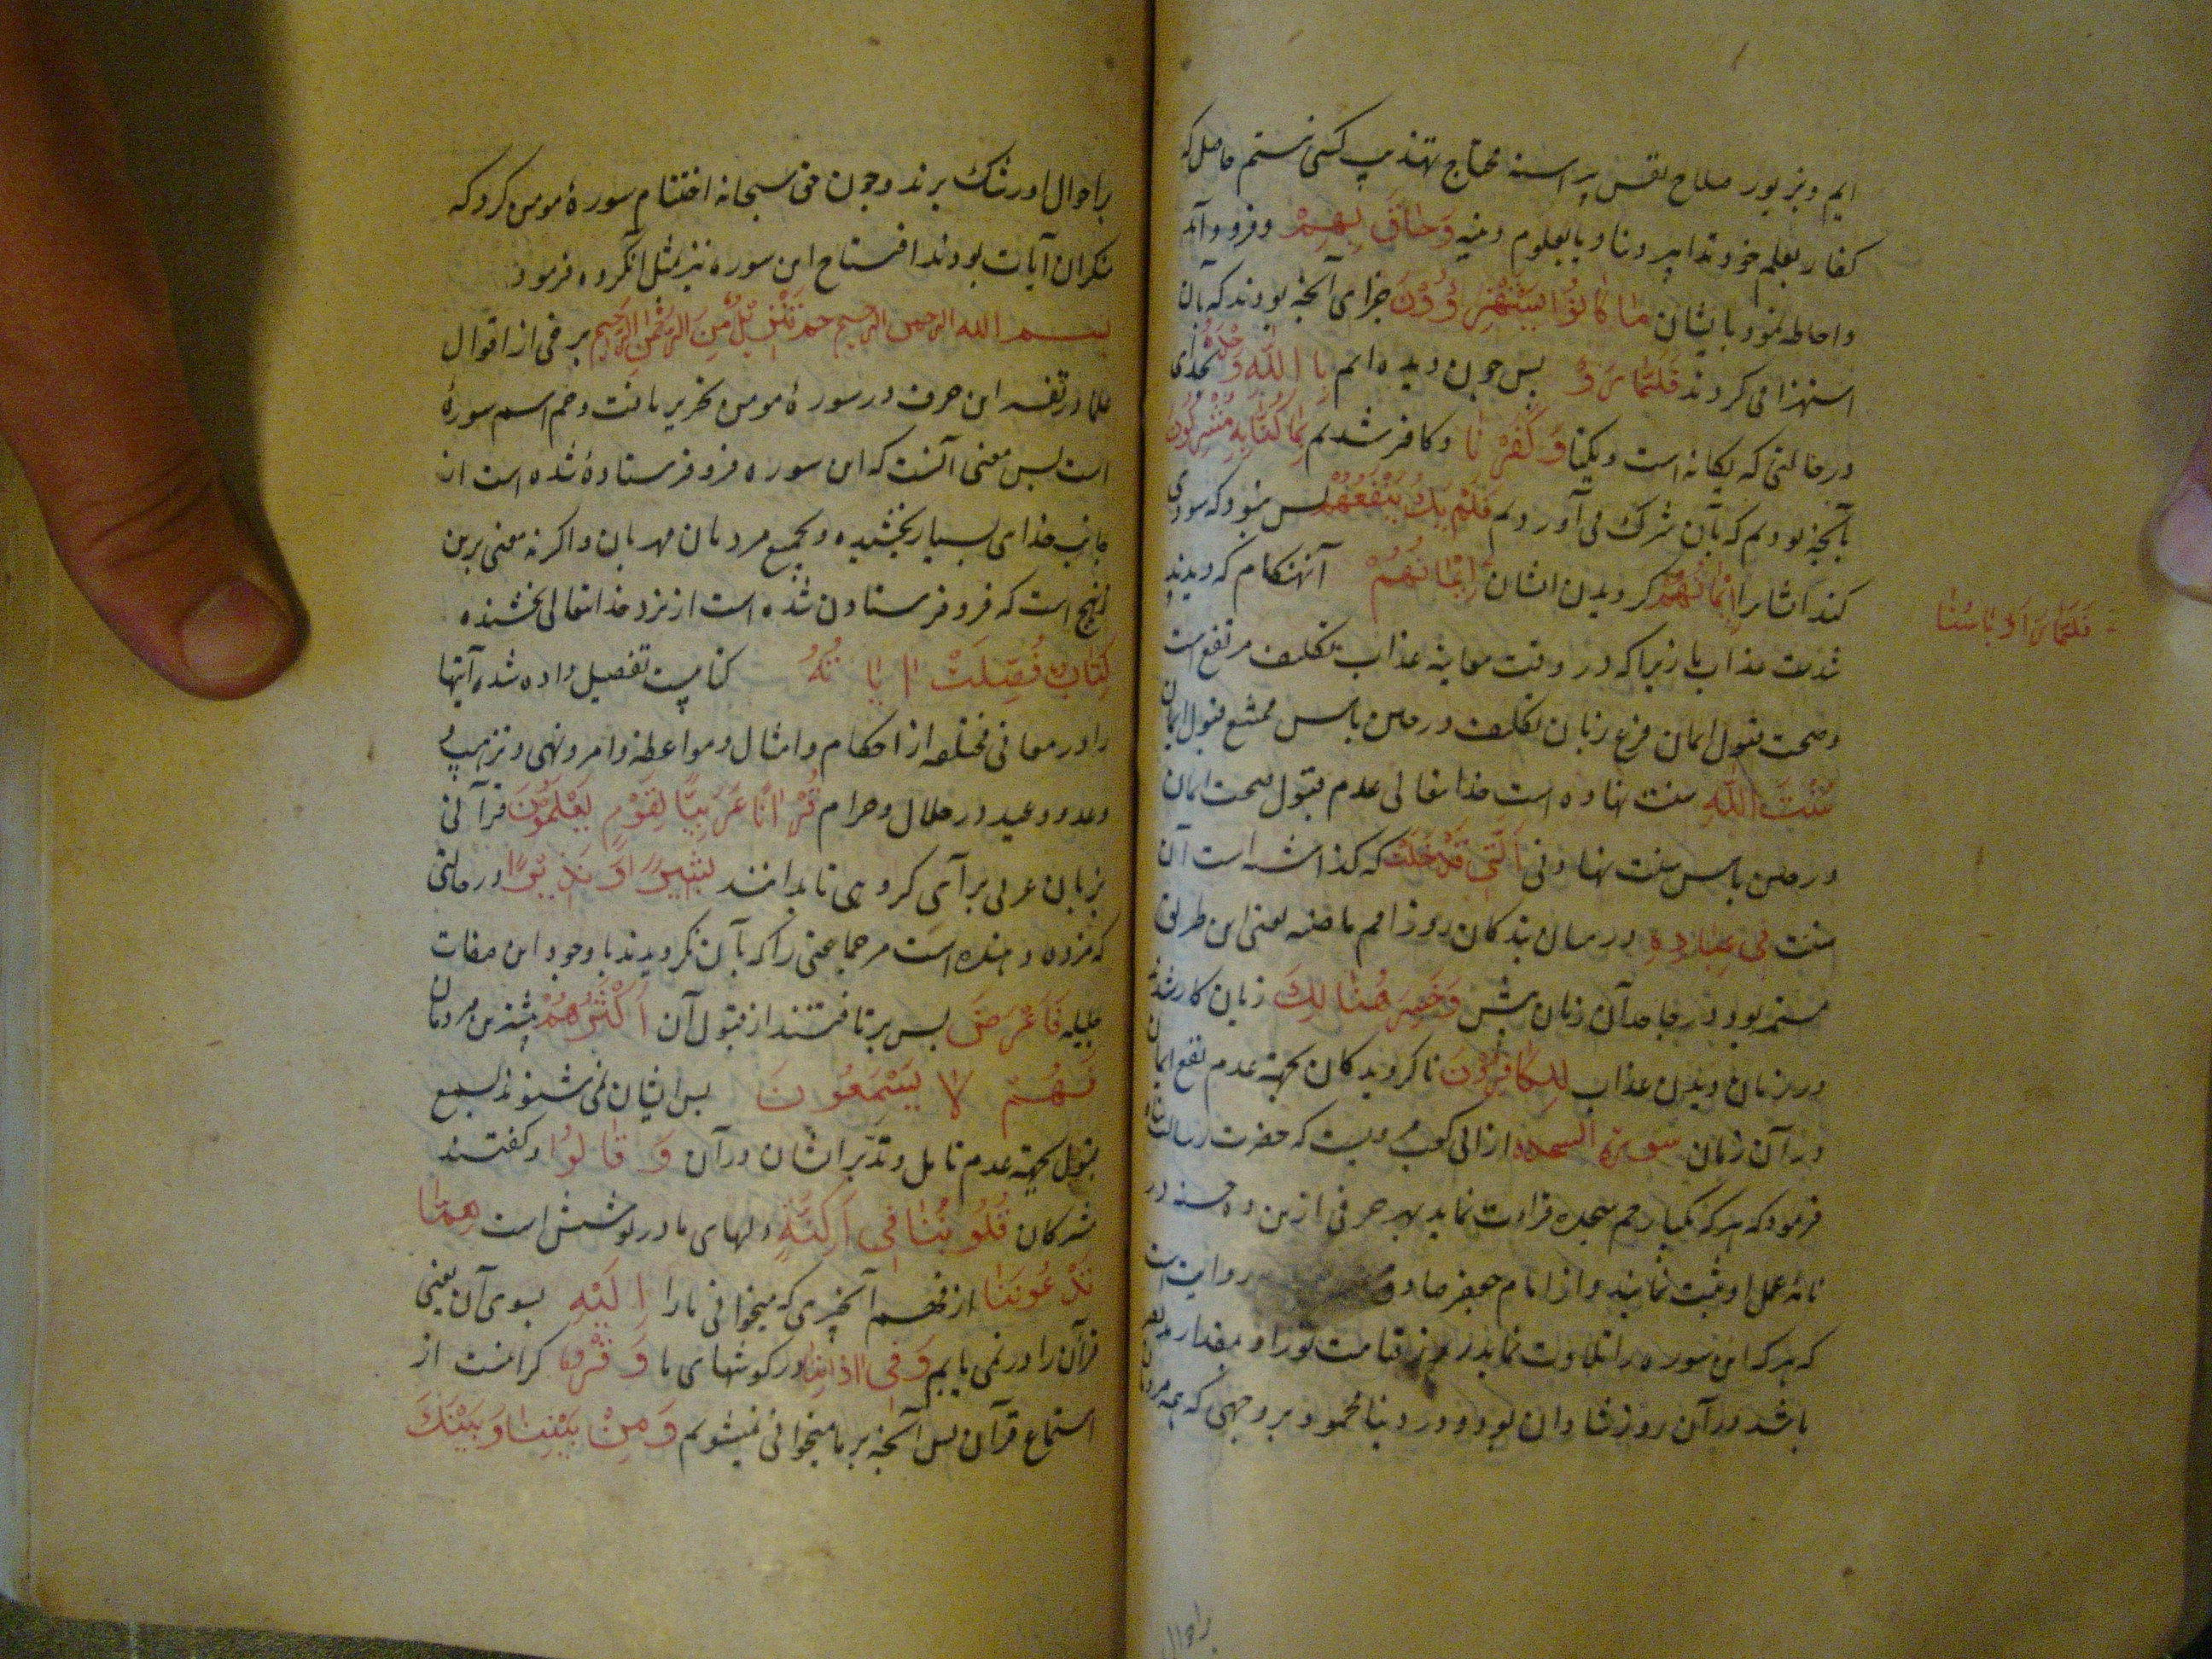 ایم و بزیور صلاح نفس پیراسته محتاج تهذیب کسی نیستم حاصل که
کفار بعلم خود تدابیر دنیا و بابعلوم دینیه وَحَاقَ بِهِمْ و فرود آمد
و احاطه نمود بایشان مَا كَانُوا بِهِ يَسْتَهْزِؤُنَ جزای آنچه بودند که بآن
استهزا می کردند فَلَمَّا رَأَوْ پس چون دیدند ایم بِاللّٰهِ وَحْدَهُ بخدای
در حالتی که یکانه است و یکتا وَكَفَرْنَا و کافر شدیم بِمَا كُنَّا بِهِ مُشْرِكِينَ
بآنچه بودیم که بآن شرک می آوردیم فَلَمْ يَكُ يَنْفَعُهُمْ پس نبود که سودی
کند ایشانرا اِيْمَانُهُمْ کرویدن ایشان اِيْمَانُهُمْ آنهنکام که دیدند
فَلَمَّا رَاَوْا بَاْسَنَا
شدت عذاب ما زیرا که در وقت معاینه عذاب تکلیف مرتفع است
و صحت قبول ایمان فرع زمان تکلیف در حین باس ممتنع قبول ایمان
سُنَّتَ اللّٰهِ سنت نهاده است خدایتعالی عدم قبول صحت ایمان
در حین باس سنت نهادنی اَلَّتِي قَدْ خَلَتْ که کذاشته است آن
سنت فِي عِبَادِهِ در میان بندکان روز امم ماضیه یعنی این طریق
مستمر بود در جاحدان زمان پیش وَخَسِرَ هُنَالِكَ زیان کار شدند
در زمان دیدن عذاب اَلْكَافِرُوْنَ ناکرویدکان بجهة عدم نفع ایمان
در آن زمان سورة السجده از ابی کعب مرویست که حضرت رسالت
فرمود که هر که یکبار حم سجده قراءت نماید بهر حرفی ازین ده حسنه در
نامه عمل او ثبت نمایند و از امام جعفر صادق روایت است
که هر که این سوره را تلاوت نماید در روز قیامت نور او بمقدار مد بصر
باشد و در آن روز شادان بود و در دنیا محمود بر وجهی که همه مردمان
براحوال
براحوال او رشک برند و چون حق سبحانه اختتام سورهٔ مومن کرد که
منکران آیات بودند افتتاح این سوره نیز بمثل آن کرده فرمود
بسم الله الرحمن الرحیم حم تَنْزِيْلٌ مِنَ الرَّحْمٰنِ الرَّحِيْمِ برخی از اقوال
علما در تفسیر این حرف در سورهٔ مومن تحریر یافت و حم اسم سورهٔ
است پس معنی آنست که این سوره فرو فرستادهٔ شده است از
جانب خدای بسیار بخشنده و بجمیع مردمان مهربان و اکرنه معنی برین
نهج است که فرو فرستادن شده است از نزد خدایتعالی بخشنده
كِتَابٌ فُصِّلَتْ اٰيَاتُهُ کتابیست تفصیل داده شده آیتها
را در معانی مختلفه از احکام و امثال و مواعظ و امر و نهی و ترهیب و
وعد و وعید در حلال و حرام قُرْاٰنًا عَرَبِيًّا لِقَوْمٍ يَعْلَمُوْنَ قرآنی
بزبان عربی برآی کروهی تا بدانند بَشِيْرًا وَنَذِيْرًا در حالتی
که مژده دهنده است مر جماعتی را که بآن نکرویدند باوجود این صفات
جلیله فَاَعْرَضَ پس برتافتند از قبول آن اَكْثَرُهُمْ بیشترین مردمان
فَهُمْ لَا يَسْمَعُوْنَ پس ایشان نمی شنوند بسمع
قبول بجهة عدم تامل و تدبر ایشان در آن وَقَالُوْا و کفتند
مشرکان قُلُوْبُنَا فِي اَكِنَّةٍ دلهای ما در پوشش است مِمَّا
تَدْعُوْنَنَا از فهم آنچیزی که میخوانی مارا اِلَيْهِ بسوی آن یعنی
قرآن را درنمی یابیم وَفِي اٰذَانِنَا و در کوشهای ما وَقْرٌ کرانست از
استماع قرآن پس آنچه بر ما میخوانی نمیشنویم وَمِنْ بَيْنِنَا وَبَيْنِكَ